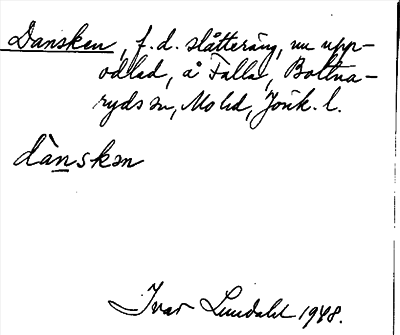 Dansken, f.d. slåtteräng, nu upp-
odlad, å Falla, Bottna-
ryds sn, Mo hd, Jönk. l.
dànskən
Ivar Lundahl 1948.